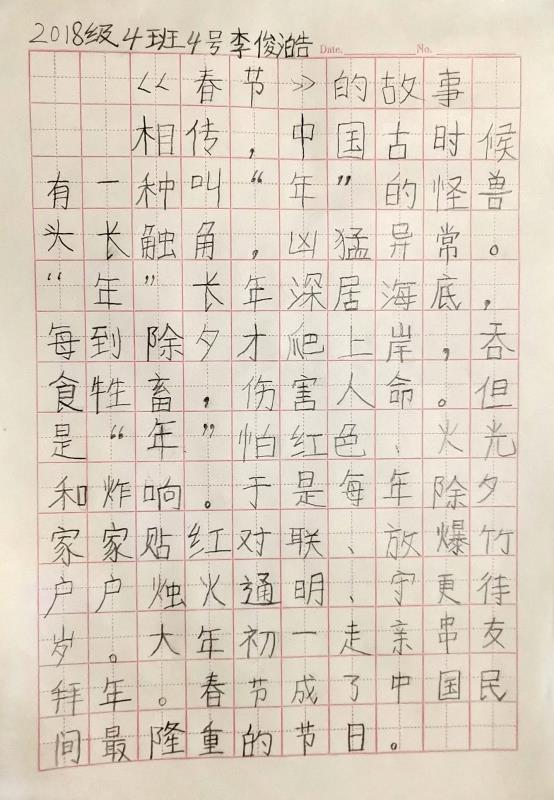 2018级4班4号李俊浩 Date. No.
《春节》的故事
相传，中国古时候
有一种叫“年”的怪兽
头长触角，凶猛异常。
“年”长年深居海底，
每到除夕才爬上岸，吞
食牲畜，伤害人命。但
是“年”怕红色、火光
和炸响。于是每年除夕
家家贴红对联、放爆竹
户户烛火通明、守更待
岁。大年初一走亲串友
拜年。春节成了中国民
间最隆重的节日。